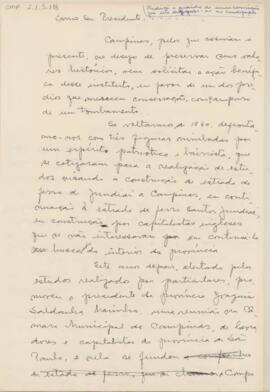 CMP 2.1.5.118
Exmo Sr. Presidente.
Campinas, pelos que assinam o
presente, no desejo de preservar seus valo-
res históricos, vem solicitar a ação benéfi-
ca desse instituto, em favor de um dos pré-
dios que merecem conservação, conservação
de um tombamento.
Se voltarmos a 1860, defronta-
mo-nos com três figuras nimbadas por
um espírito patriótico e bairrista, que
se cotizaram para a realização de estu-
dos visando a construção de estrada de
ferro de Jundiaí a Campinas, em conti-
nuação à estrada de ferro Santos-Jundiaí,
em construção por capitalistas ingleses
que se não interessavam por continuá-la
em busca do interior da província
Sete anos depois, alertado pelos
estudos realizados por particulares, pro-
moveu o presidente da província Joaquim
Saldanha Marinho, uma reunião na Câ-
mara Municipal de Campinas, de lavra-
dores e capitalistas da província de São
Paulo, e nela se fundou